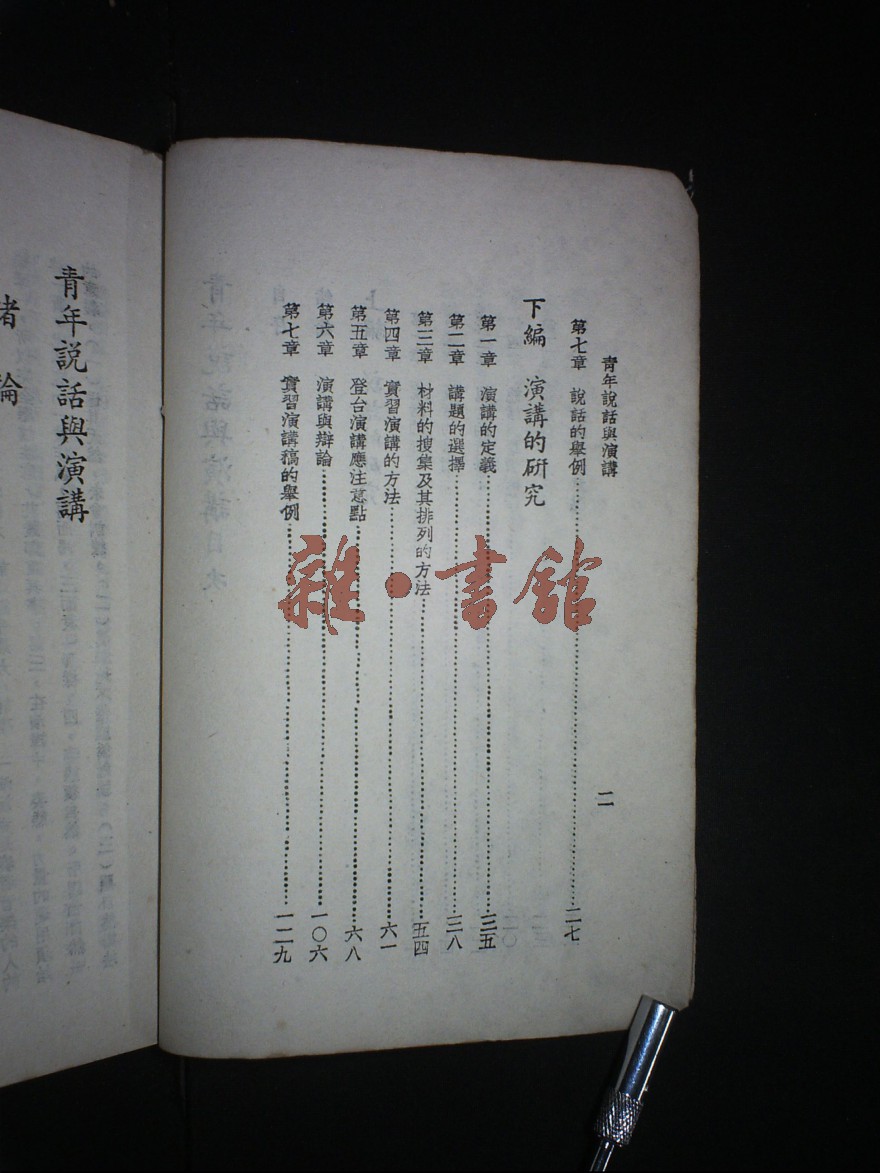 青年說話與演講
二
第七章 說話的舉例……二七
下編 演講的研究
第一章 演講的定義……三五
第二章 講題的選擇……三八
第三章 材料的搜集及其排列的方法……五四
第四章 實習演講的方法……六一
第五章 登台演講應注意點……六八
第六章 演講與辯論……一〇六
第七章 實習演講稿的舉例……一二九
雜·書館
青年說話與演講
緒論